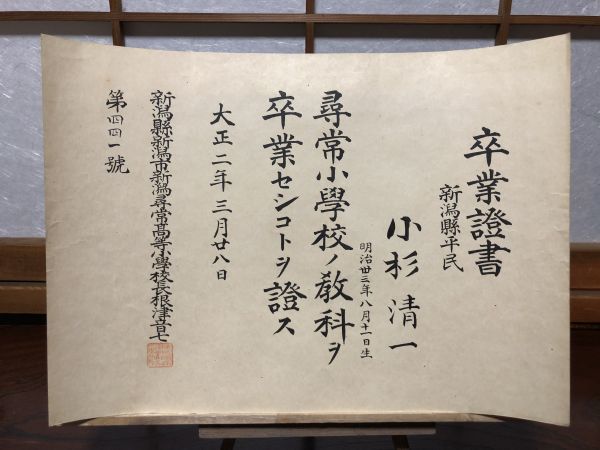 卒業證書
新潟縣平民
小杉清一
明治卅三年八月十一日生
尋常小學校ノ教科ヲ
卒業セシコトヲ證ス
大正二年三月廿八日
新潟縣新潟市新潟尋常高等小學校長根津音七
第四四一號